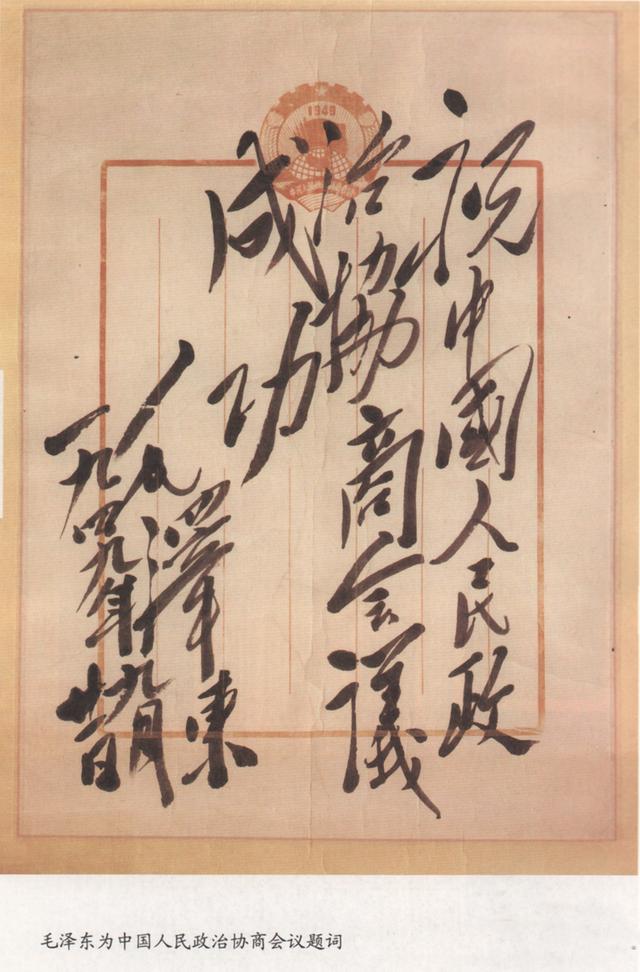 1949
祝中國人民政
治協商会議
成功
毛澤東
一九四九年
九月
廿一日
毛泽东为中国人民政治协商会议题词